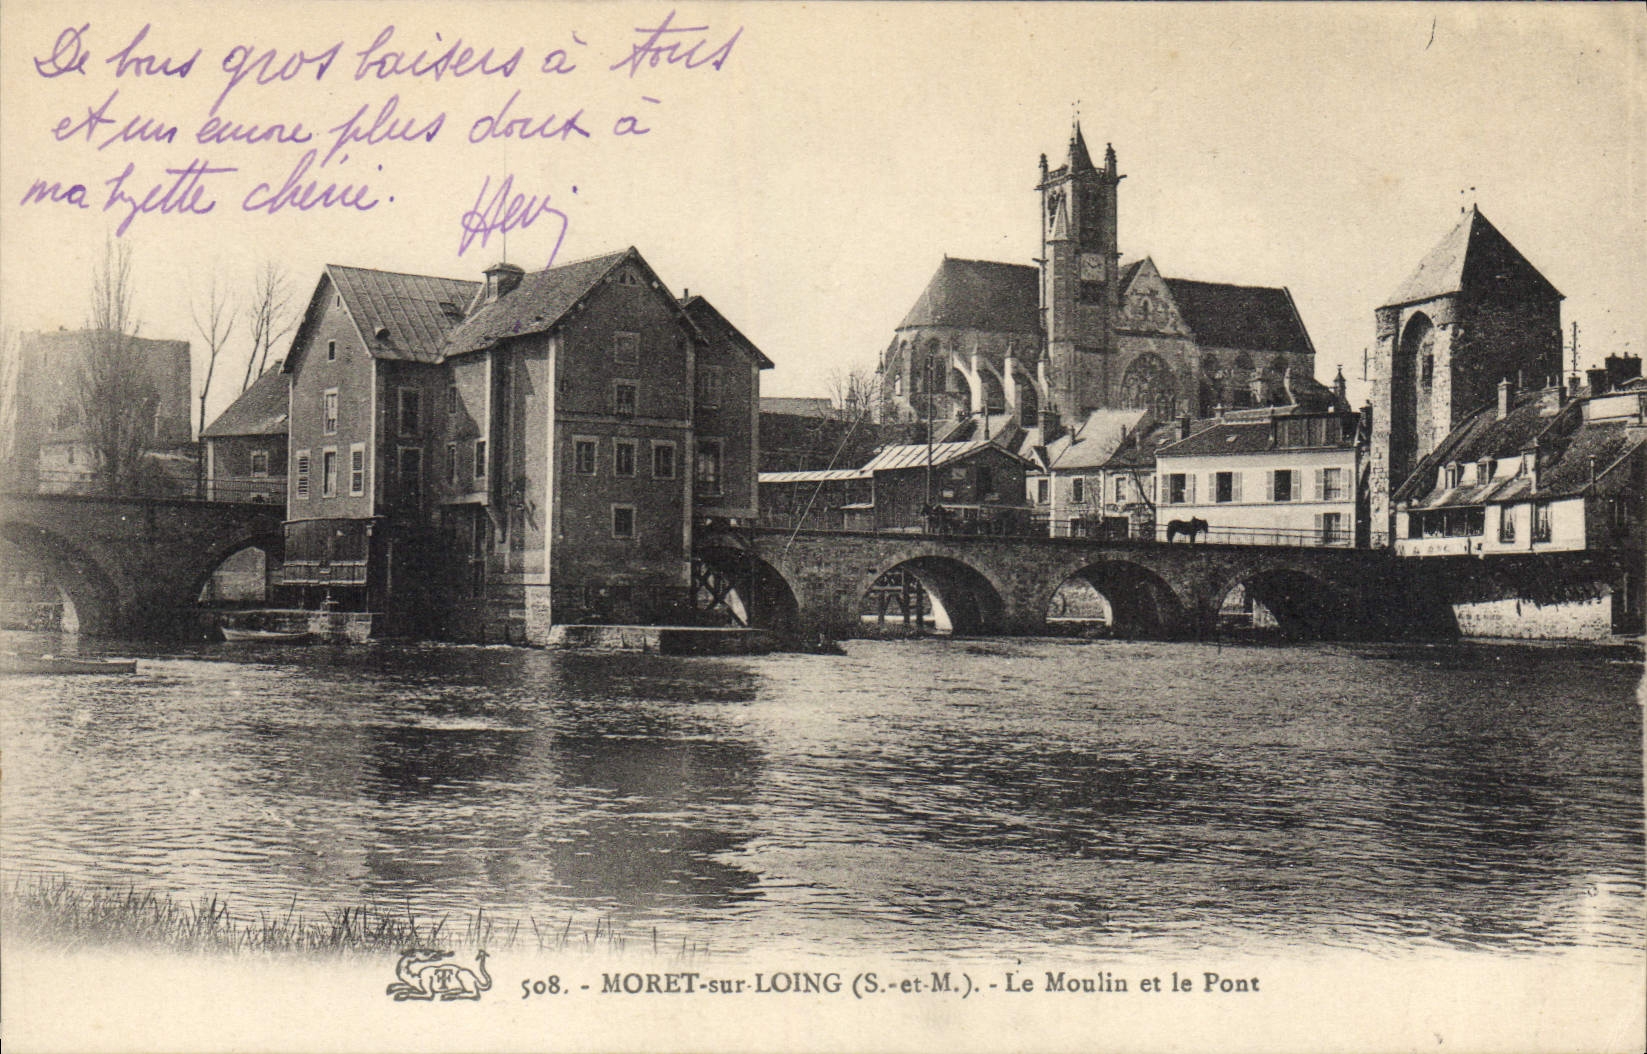 De bons gros baisers à tous
et un encore plus doux à
ma chérie.
508. - MORET-sur-LOING (S.-et-M.). - Le Moulin et le Pont